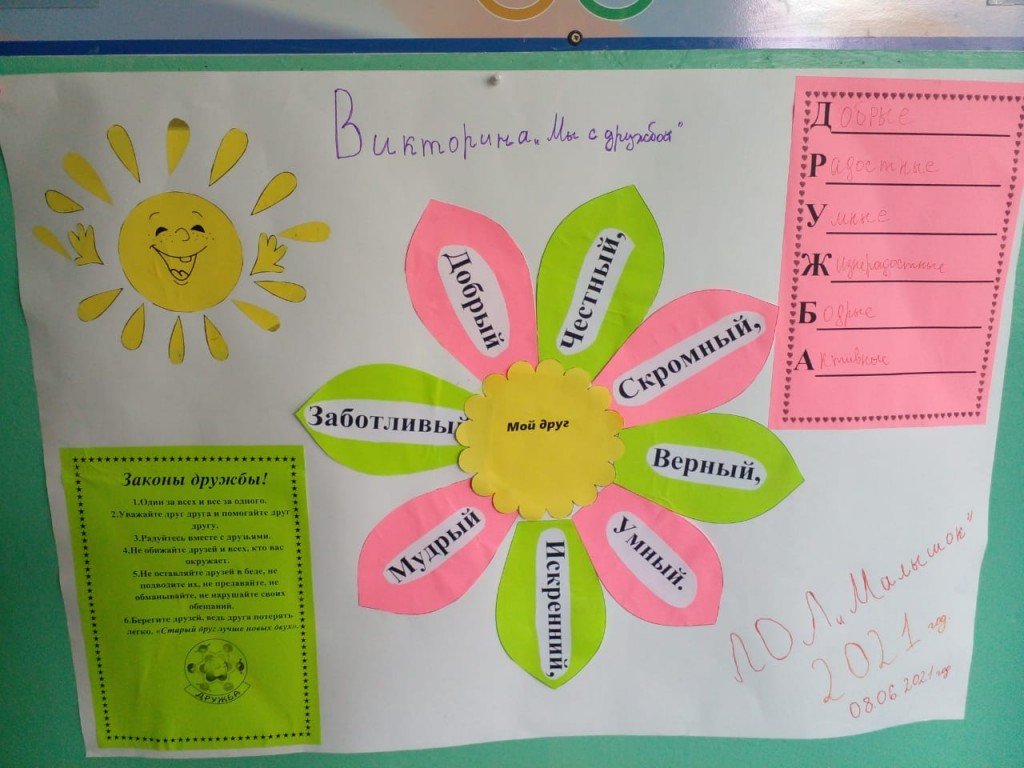 Викторина „Мы с дружбой"
Добрые
Радостные
Умные
Жизнерадостные
Бодрые
Активные
Добрый
Честный,
Скромный,
Заботливый
Мой друг
Верный,
Мудрый
Искренний,
Умный.
Законы дружбы!
1.Один за всех и все за одного.
2.Уважайте друг друга и помогайте друг
другу.
3.Радуйтесь вместе с друзьями.
4.Не обижайте друзей и всех, кто вас
окружает.
5.Не оставляйте друзей в беде, не
подводите их, не предавайте, не
обманывайте, не нарушайте своих
обещаний.
6.Берегите друзей, ведь друга потерять
легко. «Старый друг лучше новых двух».
ДРУЖБА
ЛОЛ „Малышок"
2021 год
08.06.2021 год